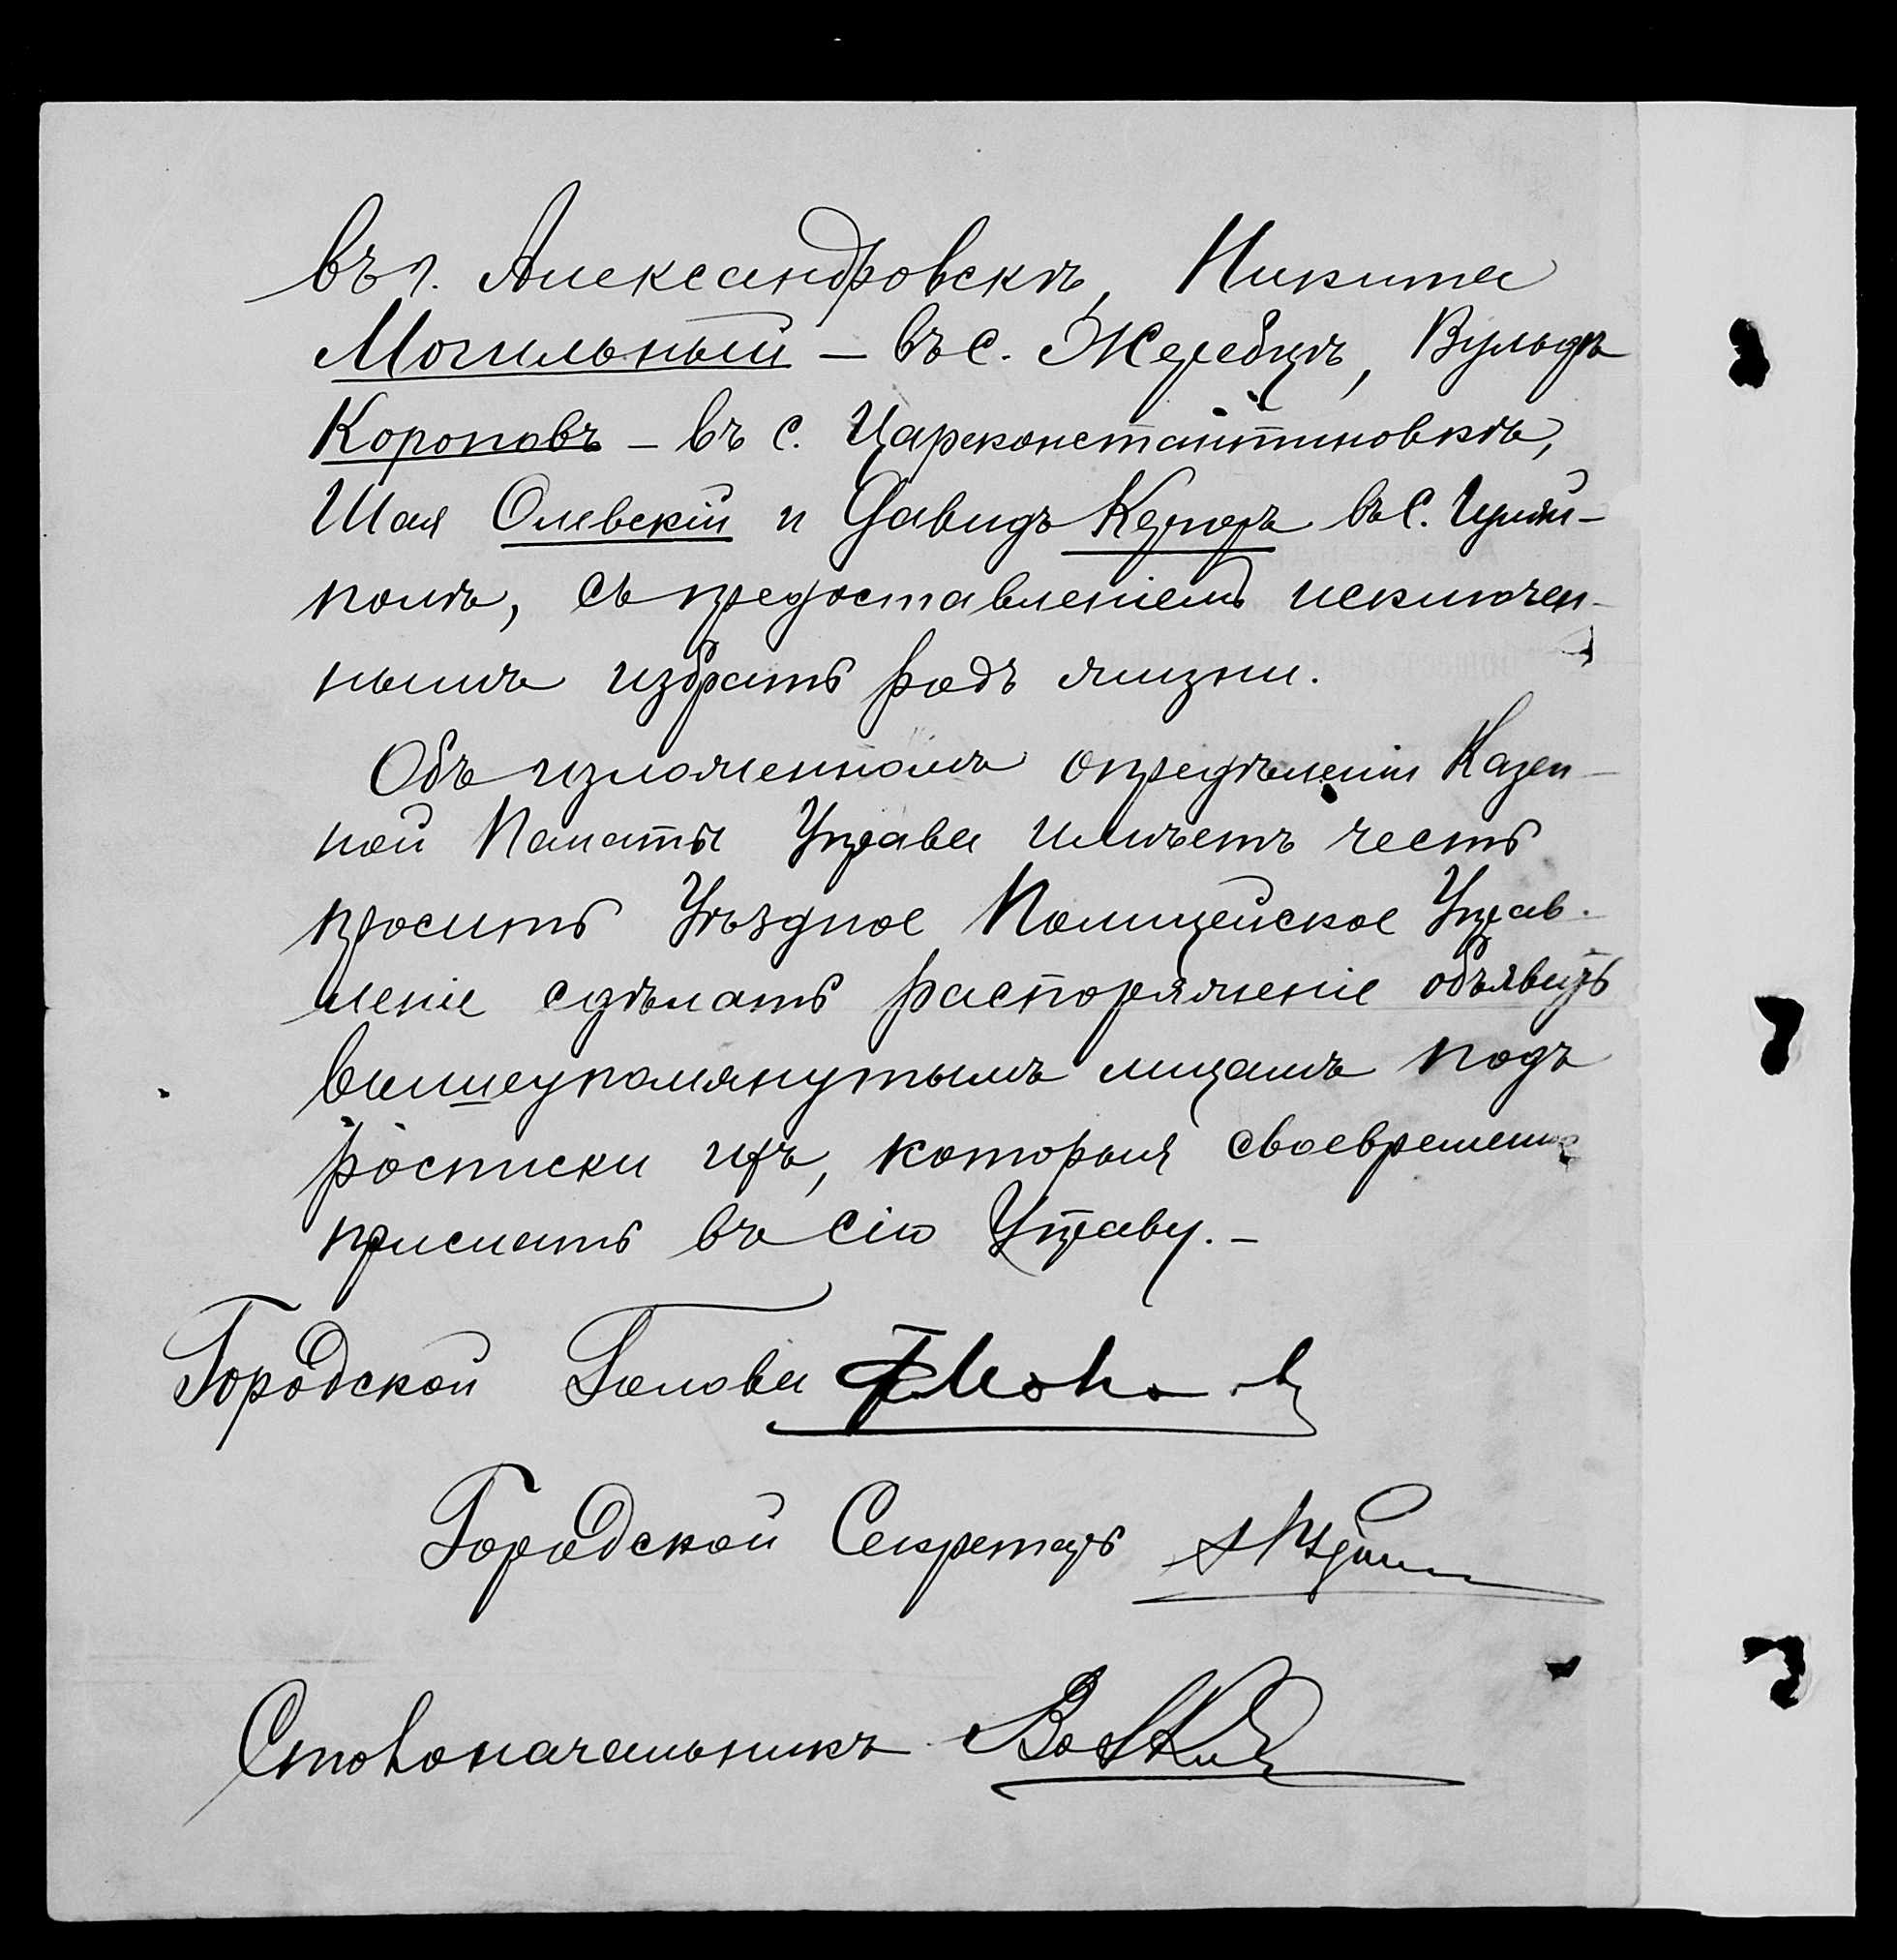 въ г. Александровскѣ, Никита
Могильный — въ с. Жеребцѣ, Вульфъ
Короповъ — въ с. Цареконстантиновкѣ,
Шая Олевскій и Давидъ въ с. Гуляй-
полѣ, съ предоставленіемъ исключен-
нымъ избрать родъ жизни.
Объ изложенномъ опредѣленіи Казен-
ной Палаты Управа имѣетъ честь
просить Уѣздное Полицейское Управ-
леніе сдѣлать распоряженіе объявить
вышеупомянутымъ лицамъ подъ
росписки ихъ, которыя своевременно
прислать въ сію Управу. —
Городской Голова
Городской Секретарь
Столоначальникъ